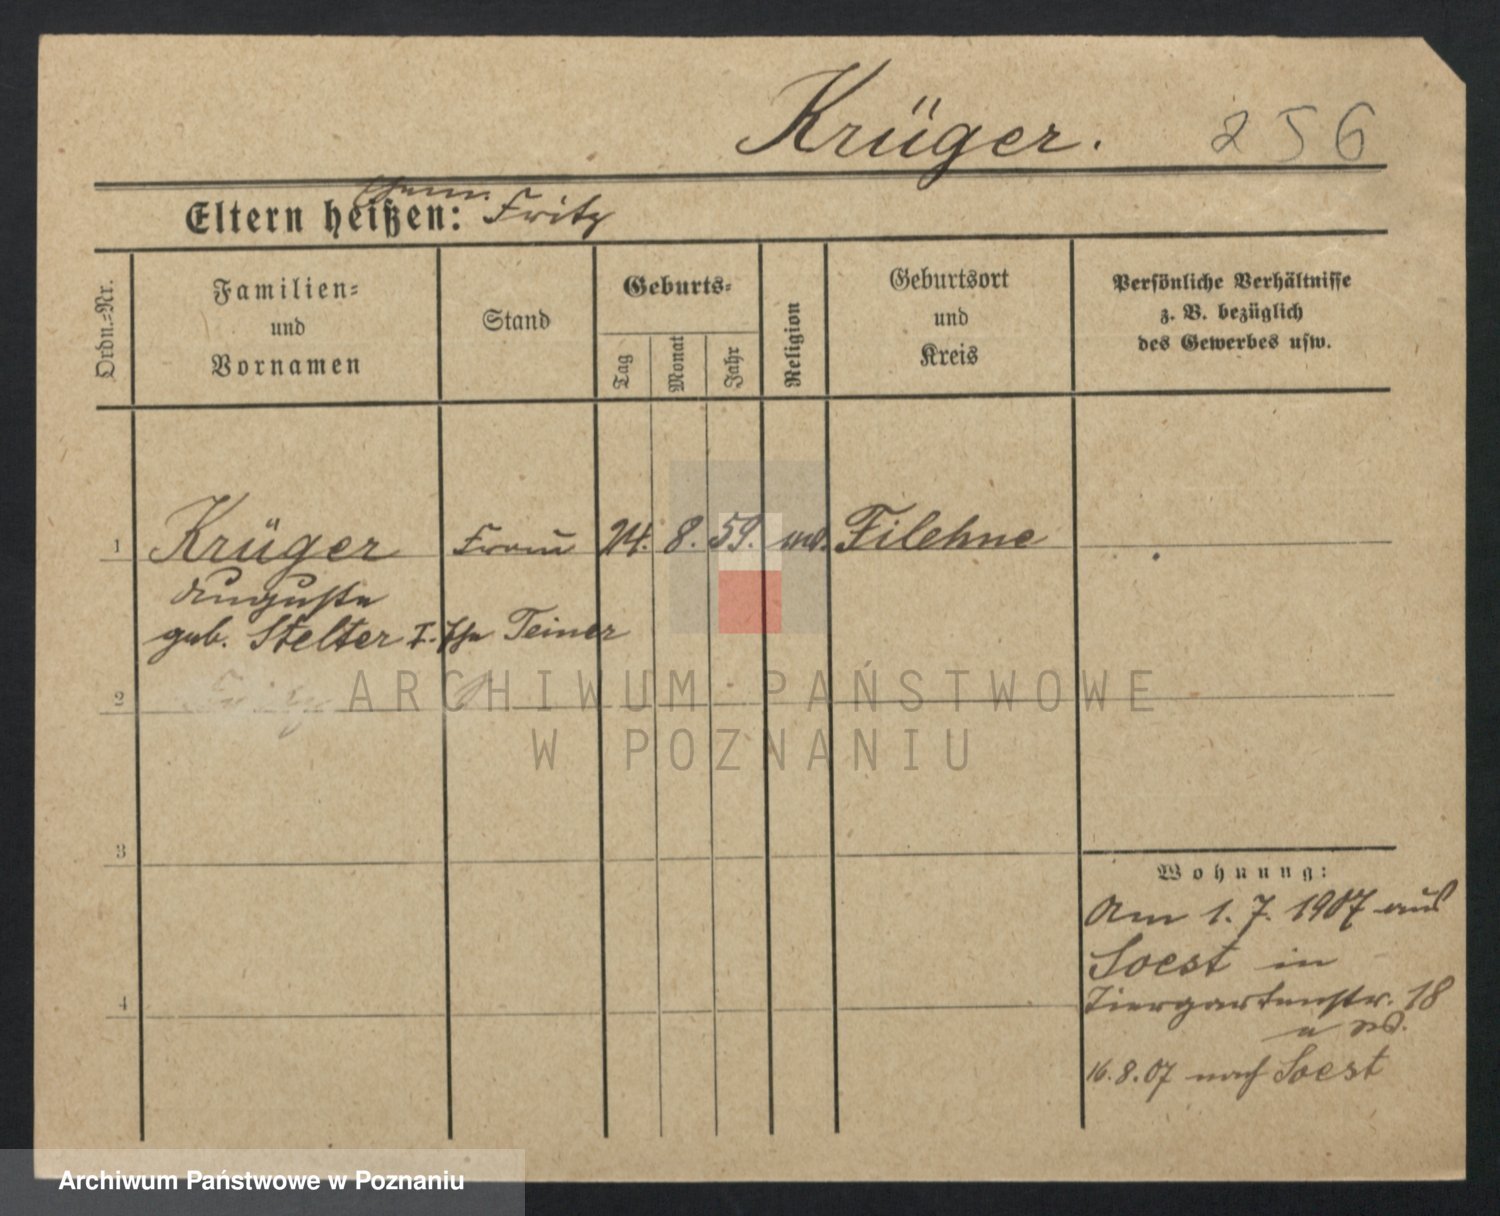 Krüger. 256
Eltern heißen: Fritz
Ordn.=Nr.
Familien=
und
Vornamen
Stand
Geburts=
Tag
Monat
Jahr
Religion
Geburtsort
und
Kreis
Persönliche Verhältnisse
z. B. bezüglich
des Gewerbes usw.
1 Krüger Frau 24. 8. 59. Filehne
Auguste
geb. Stelter I. Ehe Teiner
2
3
4
Wohnung:
Am 1. 7. 1907 aus
Soest in
Tiergartenstr. 18
16.8.07 nach Soest
ARCHIWUM PAŃSTWOWE
W POZNANIU
Archiwum Państwowe w Poznaniu